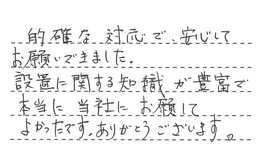 的確な対応で、安心して
お願いできました.
設置に関する知識が豊富で
本当に当社にお願して
よかったです。ありがとうございます。